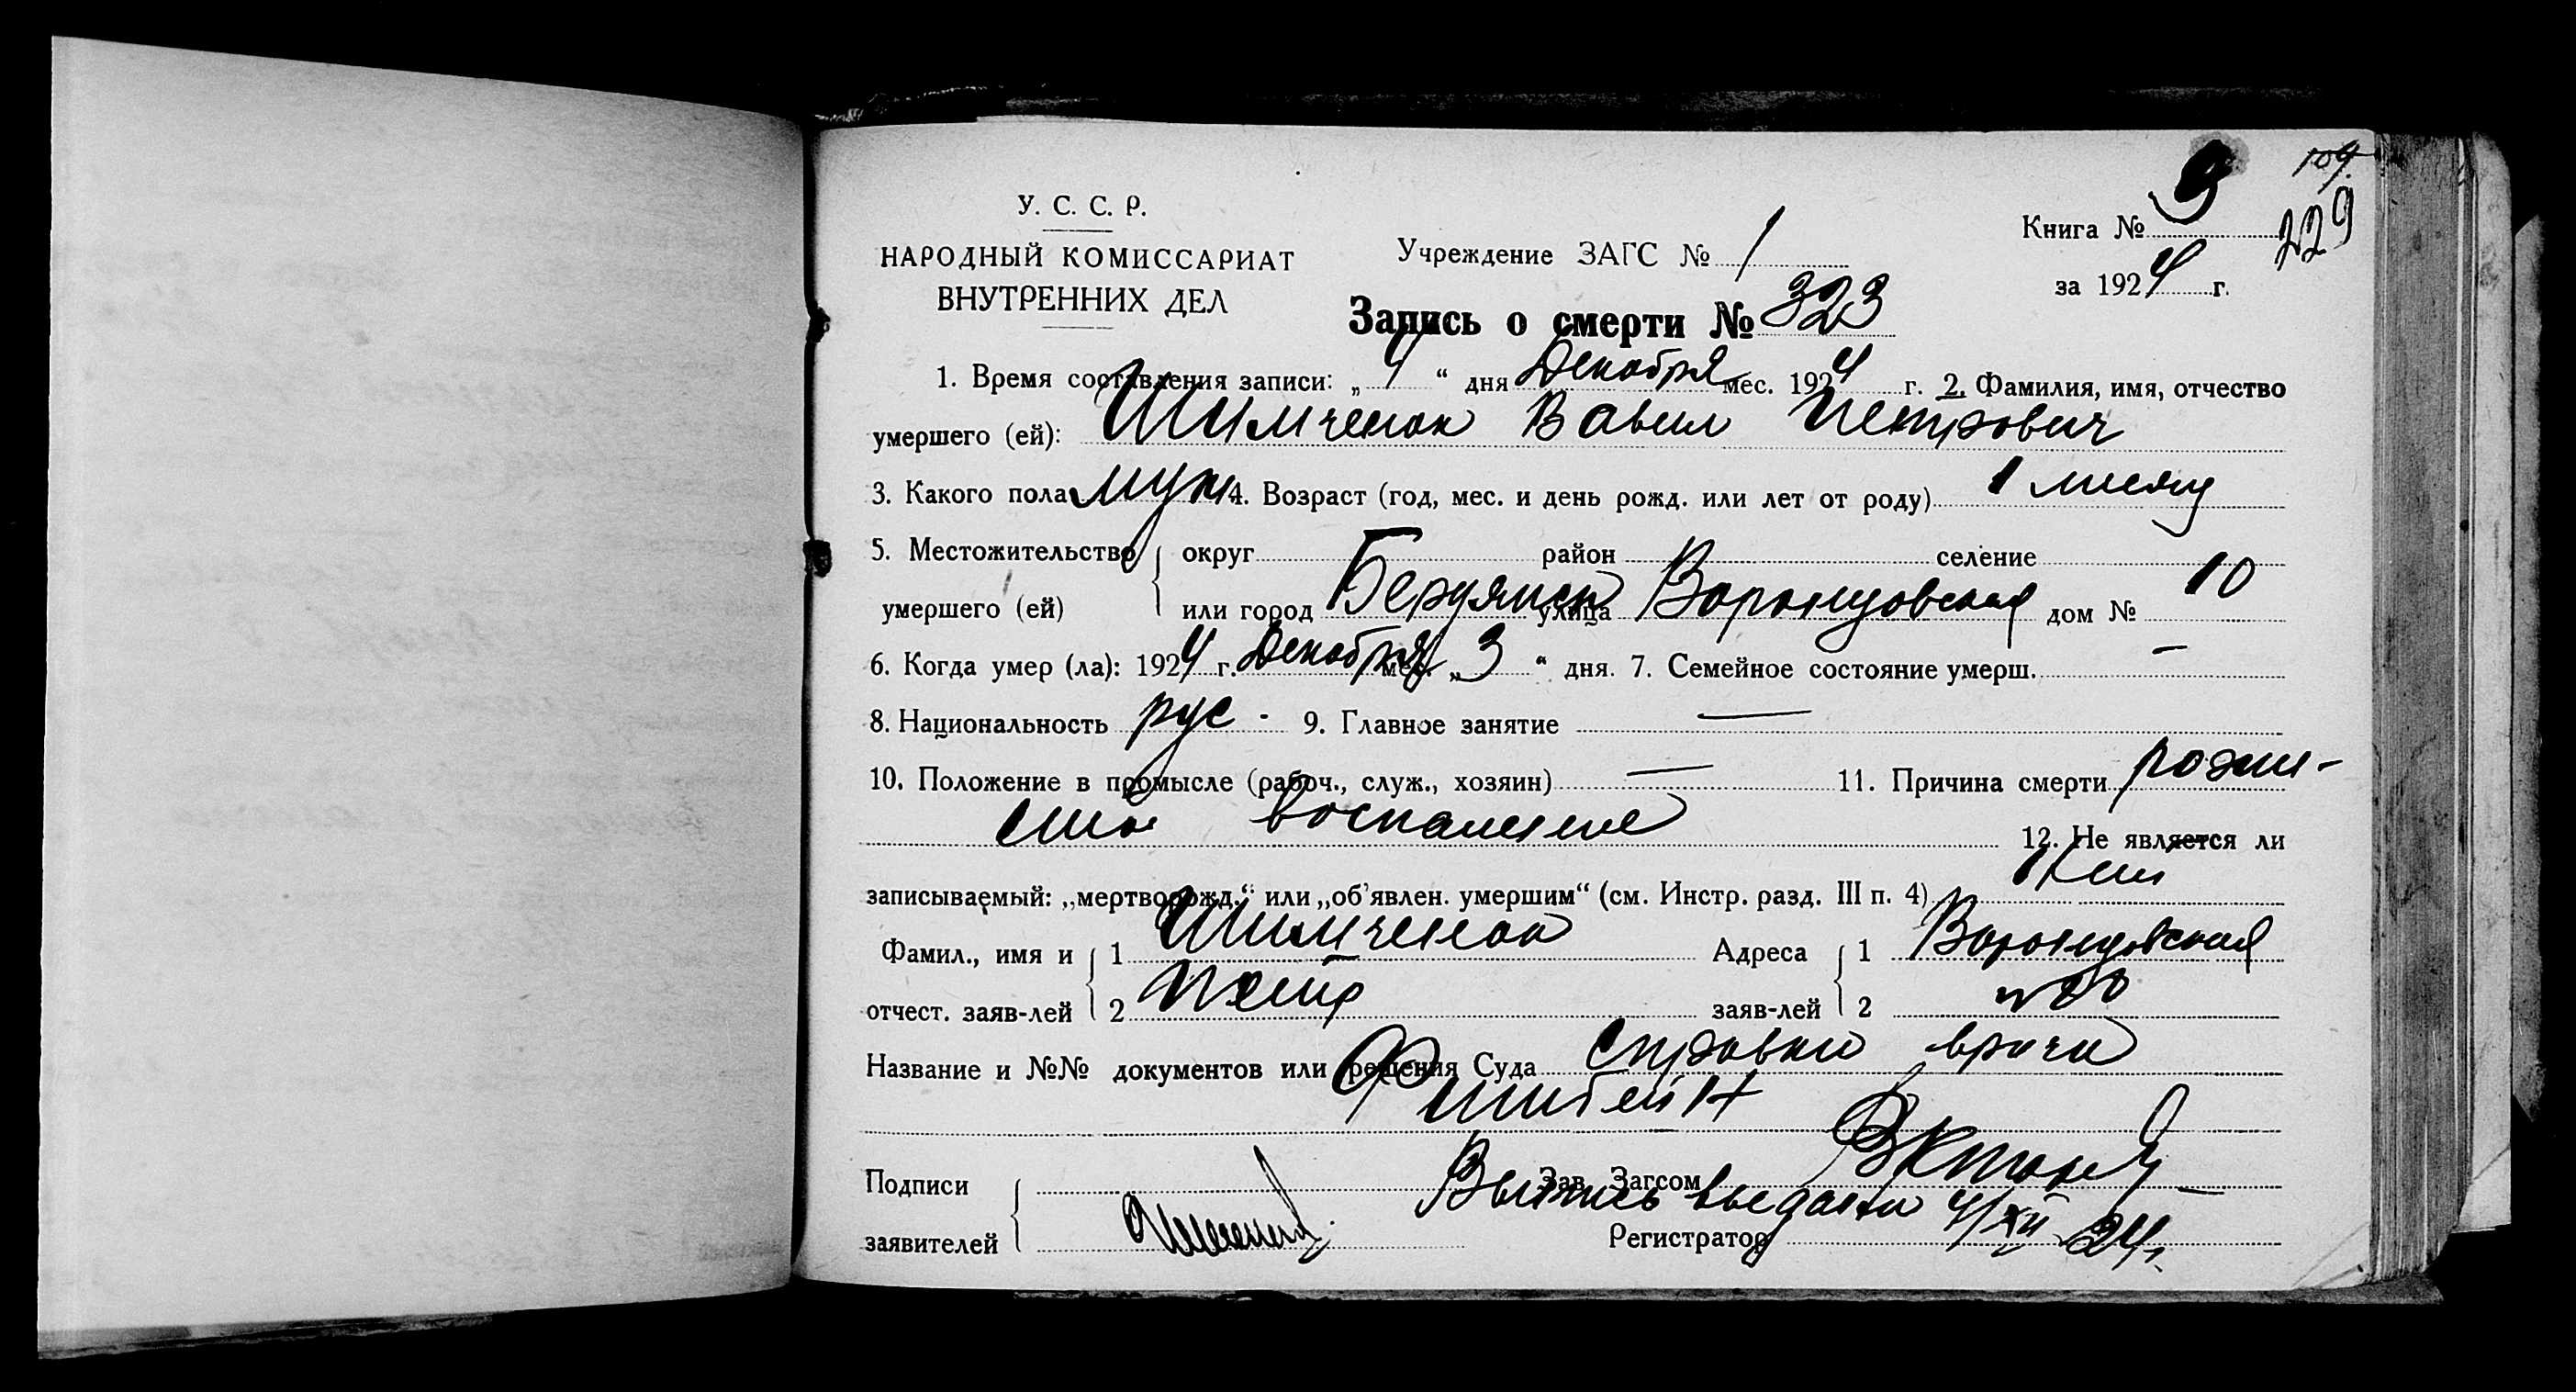 109.
229
У. С. С. Р.
НАРОДНЫЙ КОМИССАРИАТ
ВНУТРЕННИХ ДЕЛ
Учреждение ЗАГС № 1
Книга № 9
за 1924 г.
Запись о смерти № 323
1. Время составления записи: „ 4 “ дня Декабря мес. 1924 г. 2. Фамилия, имя, отчество
умершего (ей): Шимченок Павел Петрович
3. Какого пола муж 4. Возраст (год, мес. и день рожд. или лет от роду) 1 месяц
5. Местожительство округ район селение
умершего (ей) или город Бердянск улица Воронцовская дом № 10
6. Когда умер (ла): 1924 г. Декабря мес. „ 3 “ дня. 7. Семейное состояние умерш. —
8. Национальность рус. 9. Главное занятие —
10. Положение в промысле (рабоч., служ., хозяин) — 11. Причина смерти рожи-
стое воспаление 12. Не является ли
записываемый: „мертворожд.“ или „об’явлен. умершим“ (см. Инстр. разд. III п. 4) Нет
Фамил., имя и 1 Шимченок Адреса 1 Воронцовская
отчест. заяв-лей 2 Петр заяв-лей 2
Название и №№ документов или решения Суда справки врача
Подписи Зав. Загсом
Выпись выдана 4/XII 24г.
заявителей Регистратор